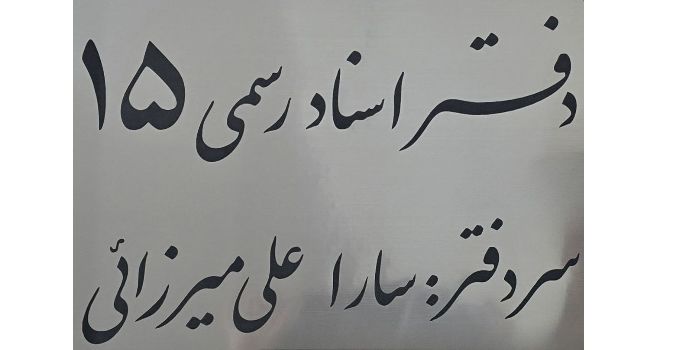 دفتر اسناد رسمی ۱۵
سردفتر: سارا علی میرزائی